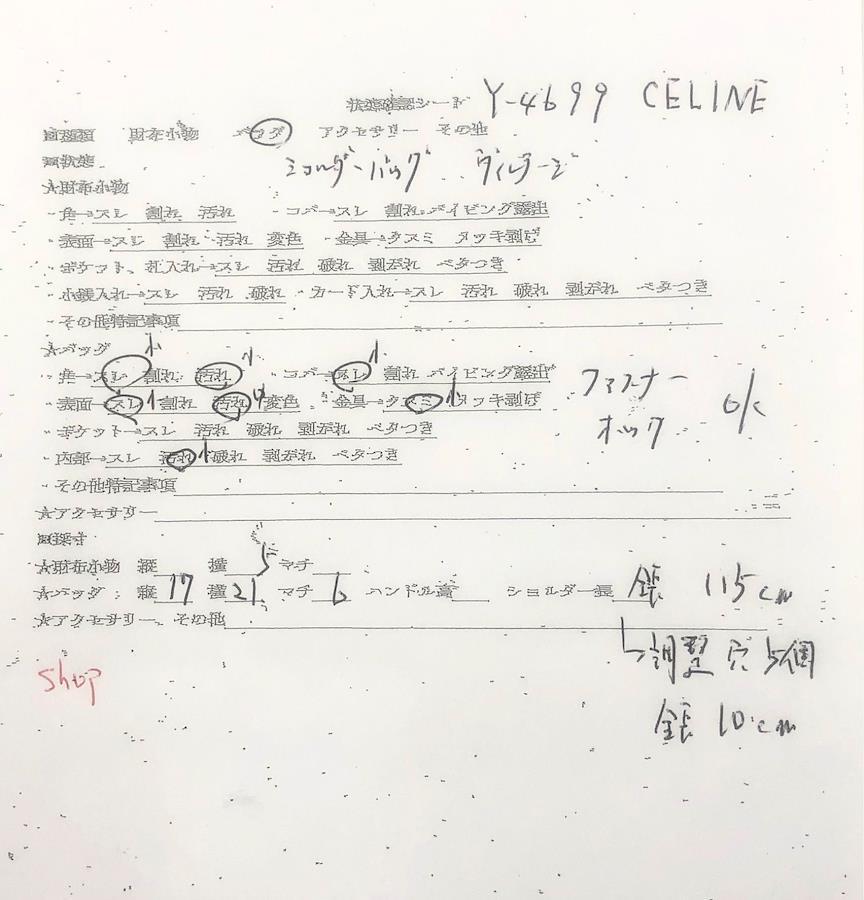 状態確認シート Y-4699 CELINE
■種類 財布小物 バッグ アクセサリー その他
■状態 ショルダーバッグ ヴィンテージ
★財布小物
・角→スレ 割れ 汚れ ・コバ→スレ 割れ パイピング露出
・表面→スレ 割れ 汚れ 変色 ・金具→クスミ メッキ剥げ
・ポケット、札入れ→スレ 汚れ 破れ 剥がれ ベタつき
・小銭入れ→スレ 汚れ 破れ ・カード入れ→スレ 汚れ 破れ 剥がれ ベタつき
・その他特記事項
★バッグ 小 小 小
・角→スレ 割れ 汚れ ・コバ→スレ 割れ パイピング露出 ファスナー
・表面→スレ 小 割れ 汚れ 中 変色 ・金具→クスミ 小 メッキ剥げ OK
・ポケット→スレ 汚れ 破れ 剥がれ ベタつき ホック
・内部→スレ 汚れ 小 破れ 剥がれ ベタつき
・その他特記事項
★アクセサリー
■採寸
★財布小物 縦 横 マチ
★バッグ: 縦 17 横 21 マチ 6 ハンドル高 ショルダー長 全長 115cm
★アクセサリー、その他
↳調整穴 5個
shop
全長 10cm